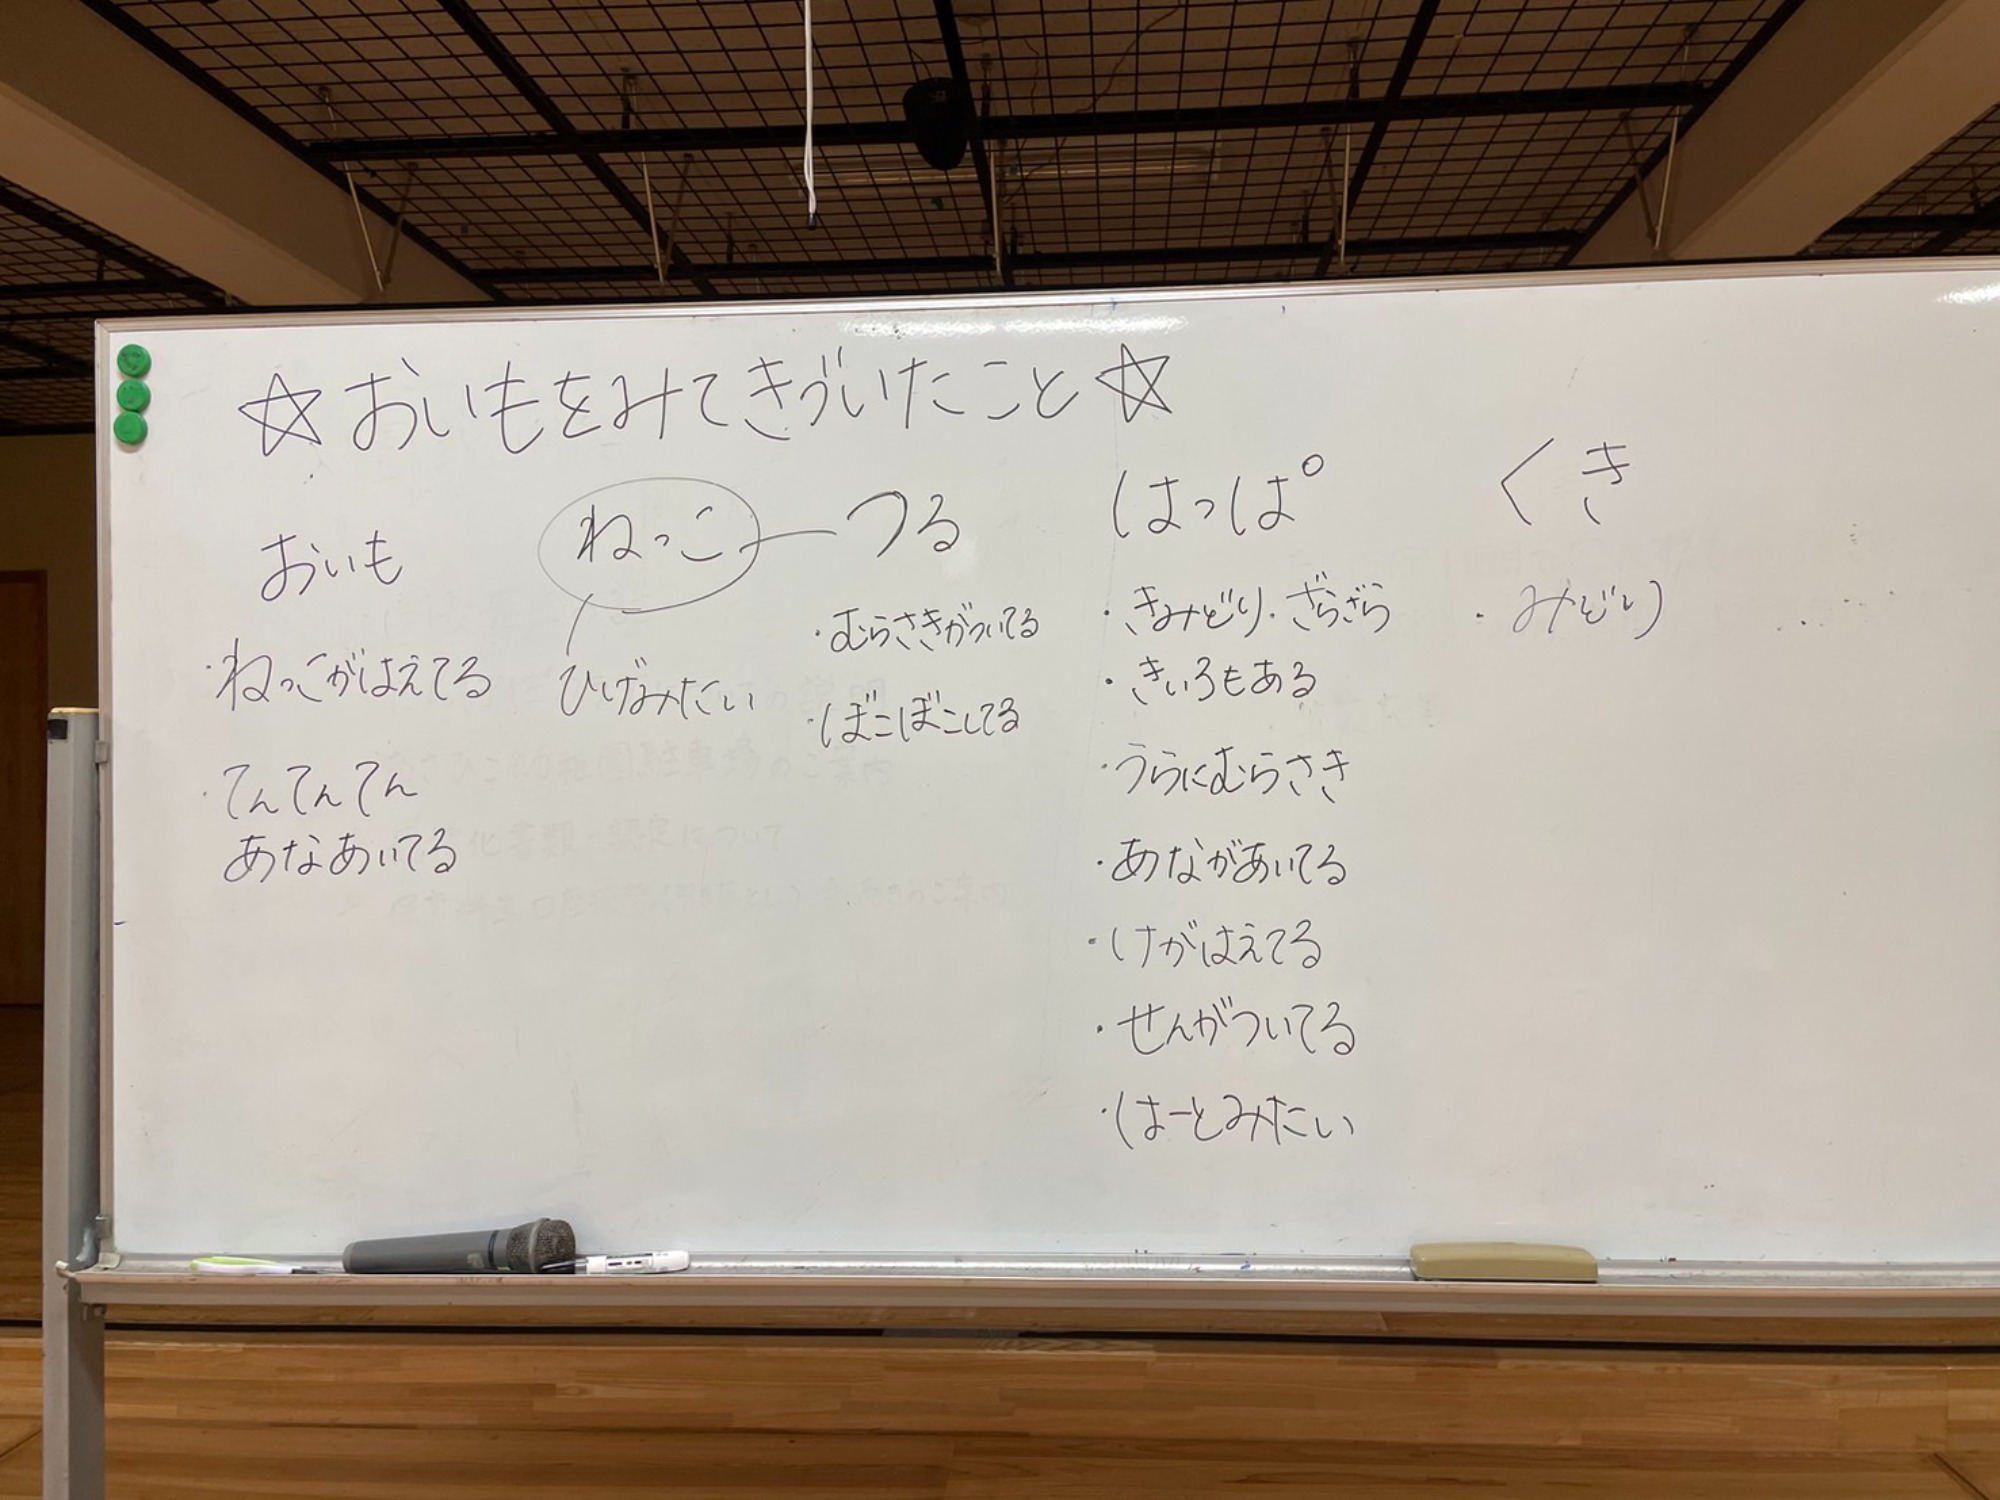 ☆おいもをみてきづいたこと☆
おいも
・ねっこがはえてる
・てんてんてん
あなあいてる
ねっこ
ひげみたい
つる
・むらさきがついてる
・ぼこぼこしてる
はっぱ
・きみどり・ざらざら
・きいろもある
・うらにむらさき
・あながあいてる
・けがはえてる
・せんがついてる
・はーとみたい
くき
・みどり